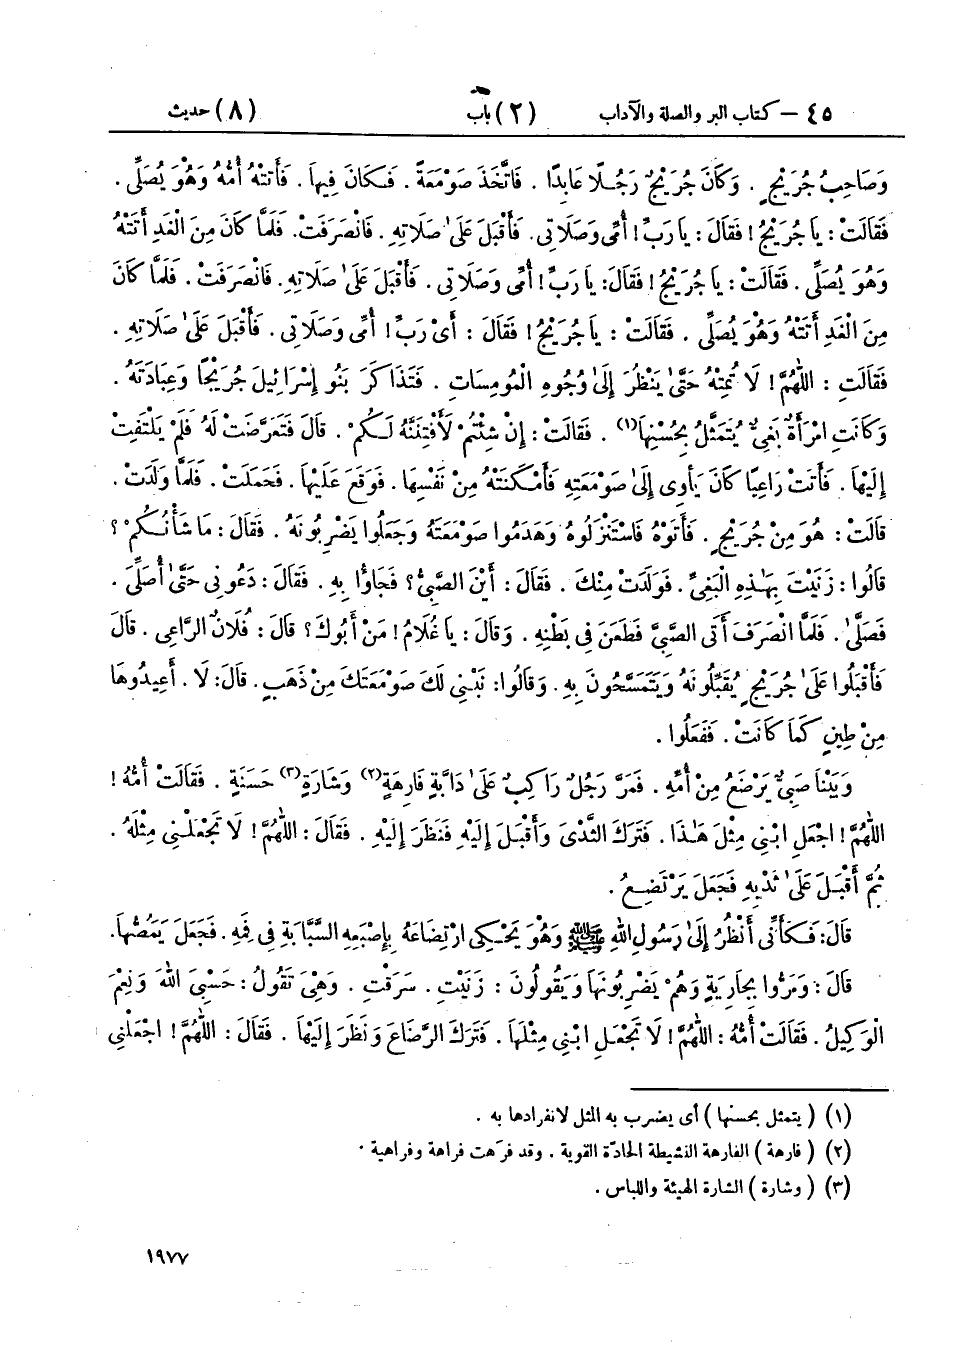 ٤٥ – كتاب البر والصلة والآداب (٢) باب (٨) حديث
وَصَاحِبُ جُرَيْجٍ . وَكَانَ جُرَيْجٌ رَجُلًا عَابِدًا . فَاتَّخَذَ صَوْمَعَةً . فَكَانَ فِيهَا . فَأَتَتْهُ أُمُّهُ وَهُوَ يُصَلِّى .
فَقَالَتْ : يَا جُرَيْجُ ! فَقَالَ : يَا رَبِّ ! أُمِّى وَصَلَاتِى . فَأَقْبَلَ عَلَىٰ صَلَاتِهِ . فَانْصَرَفَتْ . فَلَمَّا كَانَ مِنَ الْغَدِ أَتَتْهُ
وَهُوَ يُصَلِّى . فَقَالَتْ : يَا جُرَيْجُ ! فَقَالَ : يَا رَبِّ ! أُمِّى وَصَلَاتِى . فَأَقْبَلَ عَلَىٰ صَلَاتِهِ . فَانْصَرَفَتْ . فَلَمَّا كَانَ
مِنَ الْغَدِ أَتَتْهُ وَهُوَ يُصَلِّى . فَقَالَتْ : يَا جُرَيْجُ ! فَقَالَ : أَىْ رَبِّ ! أُمِّى وَصَلَاتِى . فَأَقْبَلَ عَلَىٰ صَلَاتِهِ .
فَقَالَتِ : اللّٰهُمَّ ! لَا تُمِتْهُ حَتَّىٰ يَنْظُرَ إِلَىٰ وُجُوهِ الْمُومِسَاتِ . فَتَذَاكَرَ بَنُو إِسْرَائِيلَ جُرَيْجًا وَعِبَادَتَهُ .
وَكَانَتِ امْرَأَةٌ بَغِىٌّ يُتَمَثَّلُ بِحُسْنِهَا (١) . فَقَالَتْ : إِنْ شِئْتُمْ لَأَفْتِنَنَّهُ لَكُمْ . قَالَ فَتَعَرَّضَتْ لَهُ فَلَمْ يَلْتَفِتْ
إِلَيْهَا . فَأَتَتْ رَاعِيًا كَانَ يَأْوِى إِلَىٰ صَوْمَعَتِهِ فَأَمْكَنَتْهُ مِنْ نَفْسِهَا . فَوَقَعَ عَلَيْهَا . فَحَمَلَتْ . فَلَمَّا وَلَدَتْ .
قَالَتْ : هُوَ مِنْ جُرَيْجٍ . فَأَتَوْهُ فَاسْتَنْزَلُوهُ وَهَدَمُوا صَوْمَعَتَهُ وَجَعَلُوا يَضْرِبُونَهُ . فَقَالَ : مَا شَأْنُكُمْ ؟
قَالُوا : زَنَيْتَ بِهَـٰذِهِ الْبَغِىِّ . فَوَلَدَتْ مِنْكَ . فَقَالَ : أَيْنَ الصَّبِىُّ ؟ فَجَاؤُا بِهِ . فَقَالَ : دَعُونِى حَتَّىٰ أُصَلِّىَ .
فَصَلَّىٰ . فَلَمَّا انْصَرَفَ أَتَى الصَّبِىَّ فَطَعَنَ فِى بَطْنِهِ . وَقَالَ : يَا غُلَامُ ! مَنْ أَبُوكَ ؟ قَالَ : فُلَانٌ الرَّاعِى . قَالَ
فَأَقْبَلُوا عَلَىٰ جُرَيْجٍ يُقَبِّلُونَهُ وَيَتَمَسَّحُونَ بِهِ . وَقَالُوا : نَبْنِى لَكَ صَوْمَعَتَكَ مِنْ ذَهَبٍ . قَالَ : لَا . أَعِيدُوهَا
مِنْ طِينٍ كَمَا كَانَتْ . فَفَعَلُوا .
وَبَيْنَا صَبِىٌّ يَرْضَعُ مِنْ أُمِّهِ . فَمَرَّ رَجُلٌ رَاكِبٌ عَلَىٰ دَابَّةٍ فَارِهَةٍ (٢) وَشَارَةٍ (٣) حَسَنَةٍ . فَقَالَتْ أُمُّهُ !
اللّٰهُمَّ ! اجْعَلِ ابْنِى مِثْلَ هَـٰذَا . فَتَرَكَ الثَّدْىَ وَأَقْبَلَ إِلَيْهِ فَنَظَرَ إِلَيْهِ . فَقَالَ : اللّٰهُمَّ ! لَا تَجْعَلْنِى مِثْلَهُ .
ثُمَّ أَقْبَلَ عَلَىٰ ثَدْيِهِ فَجَعَلَ يَرْتَضِعُ .
قَالَ : فَكَأَنِّى أَنْظُرُ إِلَىٰ رَسُولِ اللّٰهِ ﷺ وَهُوَ يَحْكِى ارْتِضَاعَهُ بِإِصْبَعِهِ السَّبَّابَةِ فِى فَمِهِ . فَجَعَلَ يَمُصُّهَا .
قَالَ : وَمَرُّوا بِجَارِيَةٍ وَهُمْ يَضْرِبُونَهَا وَيَقُولُونَ : زَنَيْتِ . سَرَقْتِ . وَهِىَ تَقُولُ : حَسْبِىَ اللّٰهُ وَنِعْمَ
الْوَكِيلُ . فَقَالَتْ أُمُّهُ : اللّٰهُمَّ ! لَا تَجْعَلِ ابْنِى مِثْلَهَا . فَتَرَكَ الرَّضَاعَ وَنَظَرَ إِلَيْهَا . فَقَالَ : اللّٰهُمَّ ! اجْعَلْنِى
(١) ( يتمثل بحسنها ) أى يضرب به المثل لانفرادها به .
(٢) ( فارهة ) الفارهة النشيطة الحادّة القوية . وقد فرَهت فراهة وفراهية .
(٣) ( وشارة ) الشارة الهيئة واللباس .
١٩٧٧